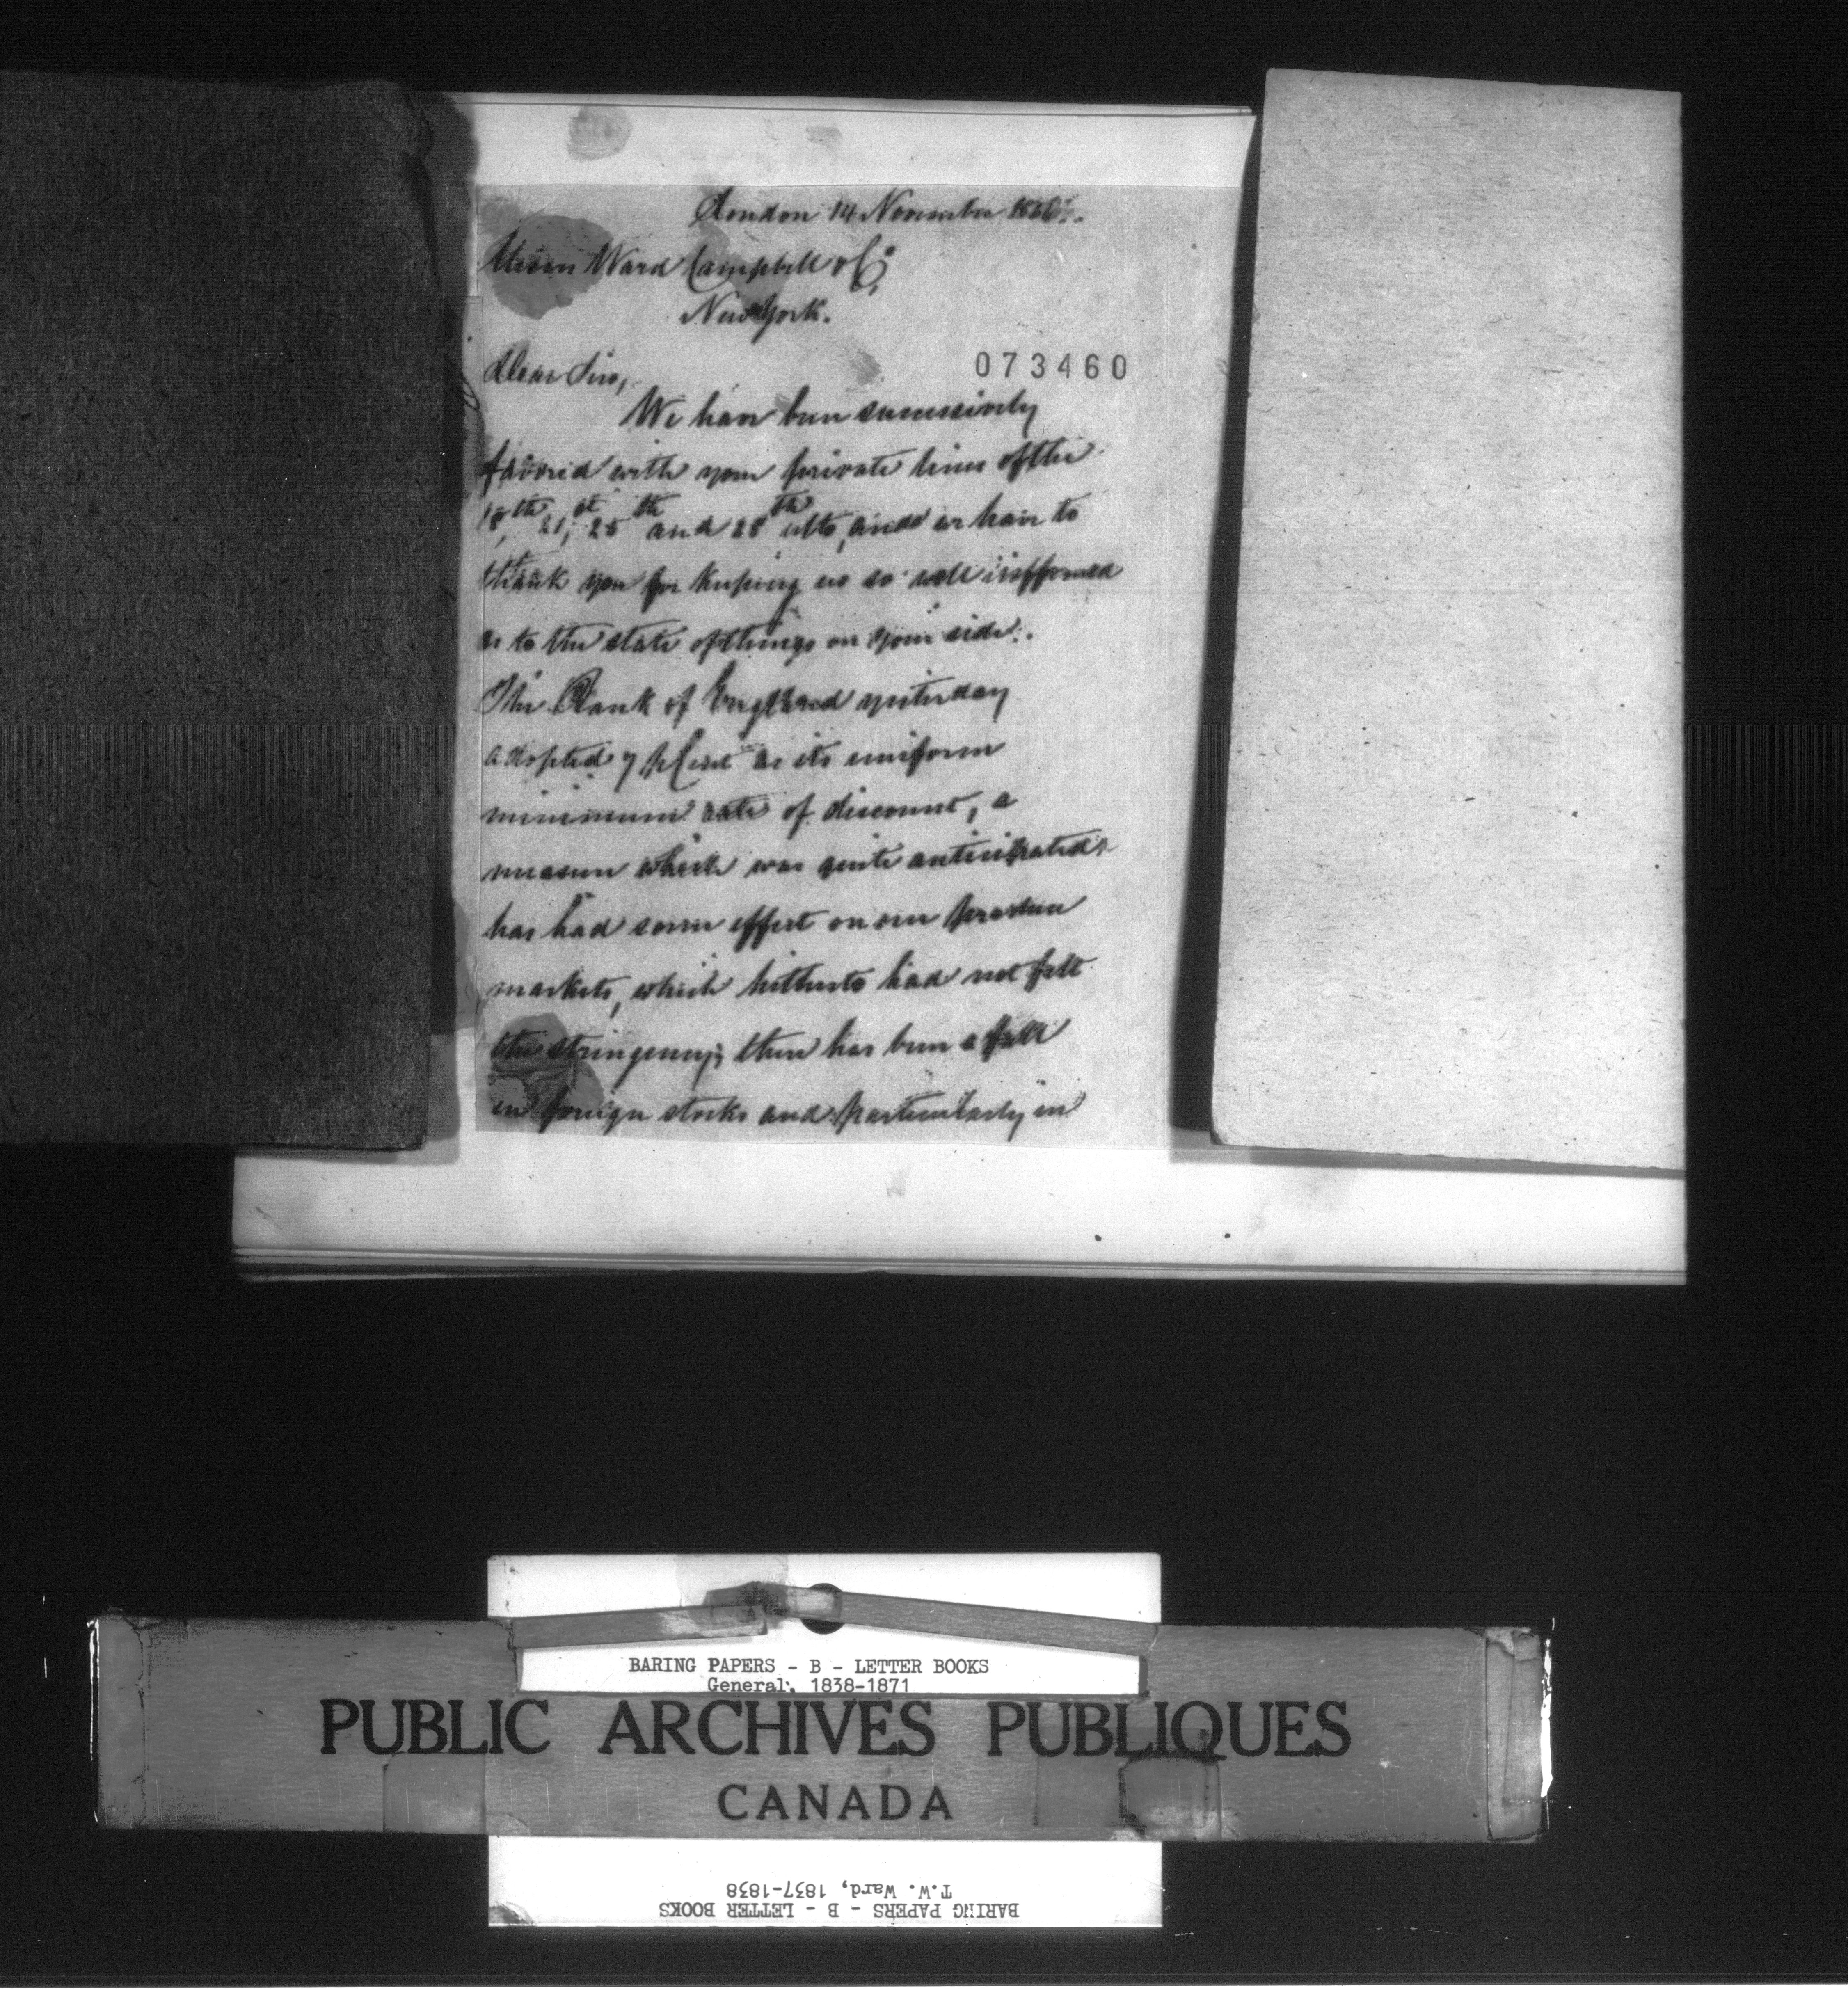 London 14 November 1856.
Messrs Ward Campbell & Co,
New York.
Dear Sirs,
073460
We have been successively
favored with your private lines of the
18th, 21st, 25th and 28th ulto, and we have to
thank you for keeping us so well informed
as to the state of things on your side.
The Bank of England yesterday
adopted 7 p Cent as its uniform
minimum rate of discount, a
measure which was quite anticipated &
has had some effect on our produce
markets, which hitherto had not felt
the stringency; there has been a fall
in foreign stocks and particularly in
BARING PAPERS - B - LETTER BOOKS
General, 1838-1871
PUBLIC ARCHIVES PUBLIQUES
CANADA
T.W. Ward, 1837-1838
BARING PAPERS - B - LETTER BOOKS